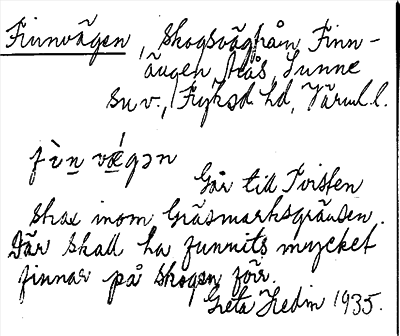 Finnvägen, skogsväg från Finn-
ängen, Ås, Sunne
sn v., Fryksd. hd, Värml. l.
fìn vǽgən
Går till Tvisten
strax inom Gräsmarksgränsen.
Där skall ha funnits mycket
finnar på skogen förr.
Greta Hedin 1935.